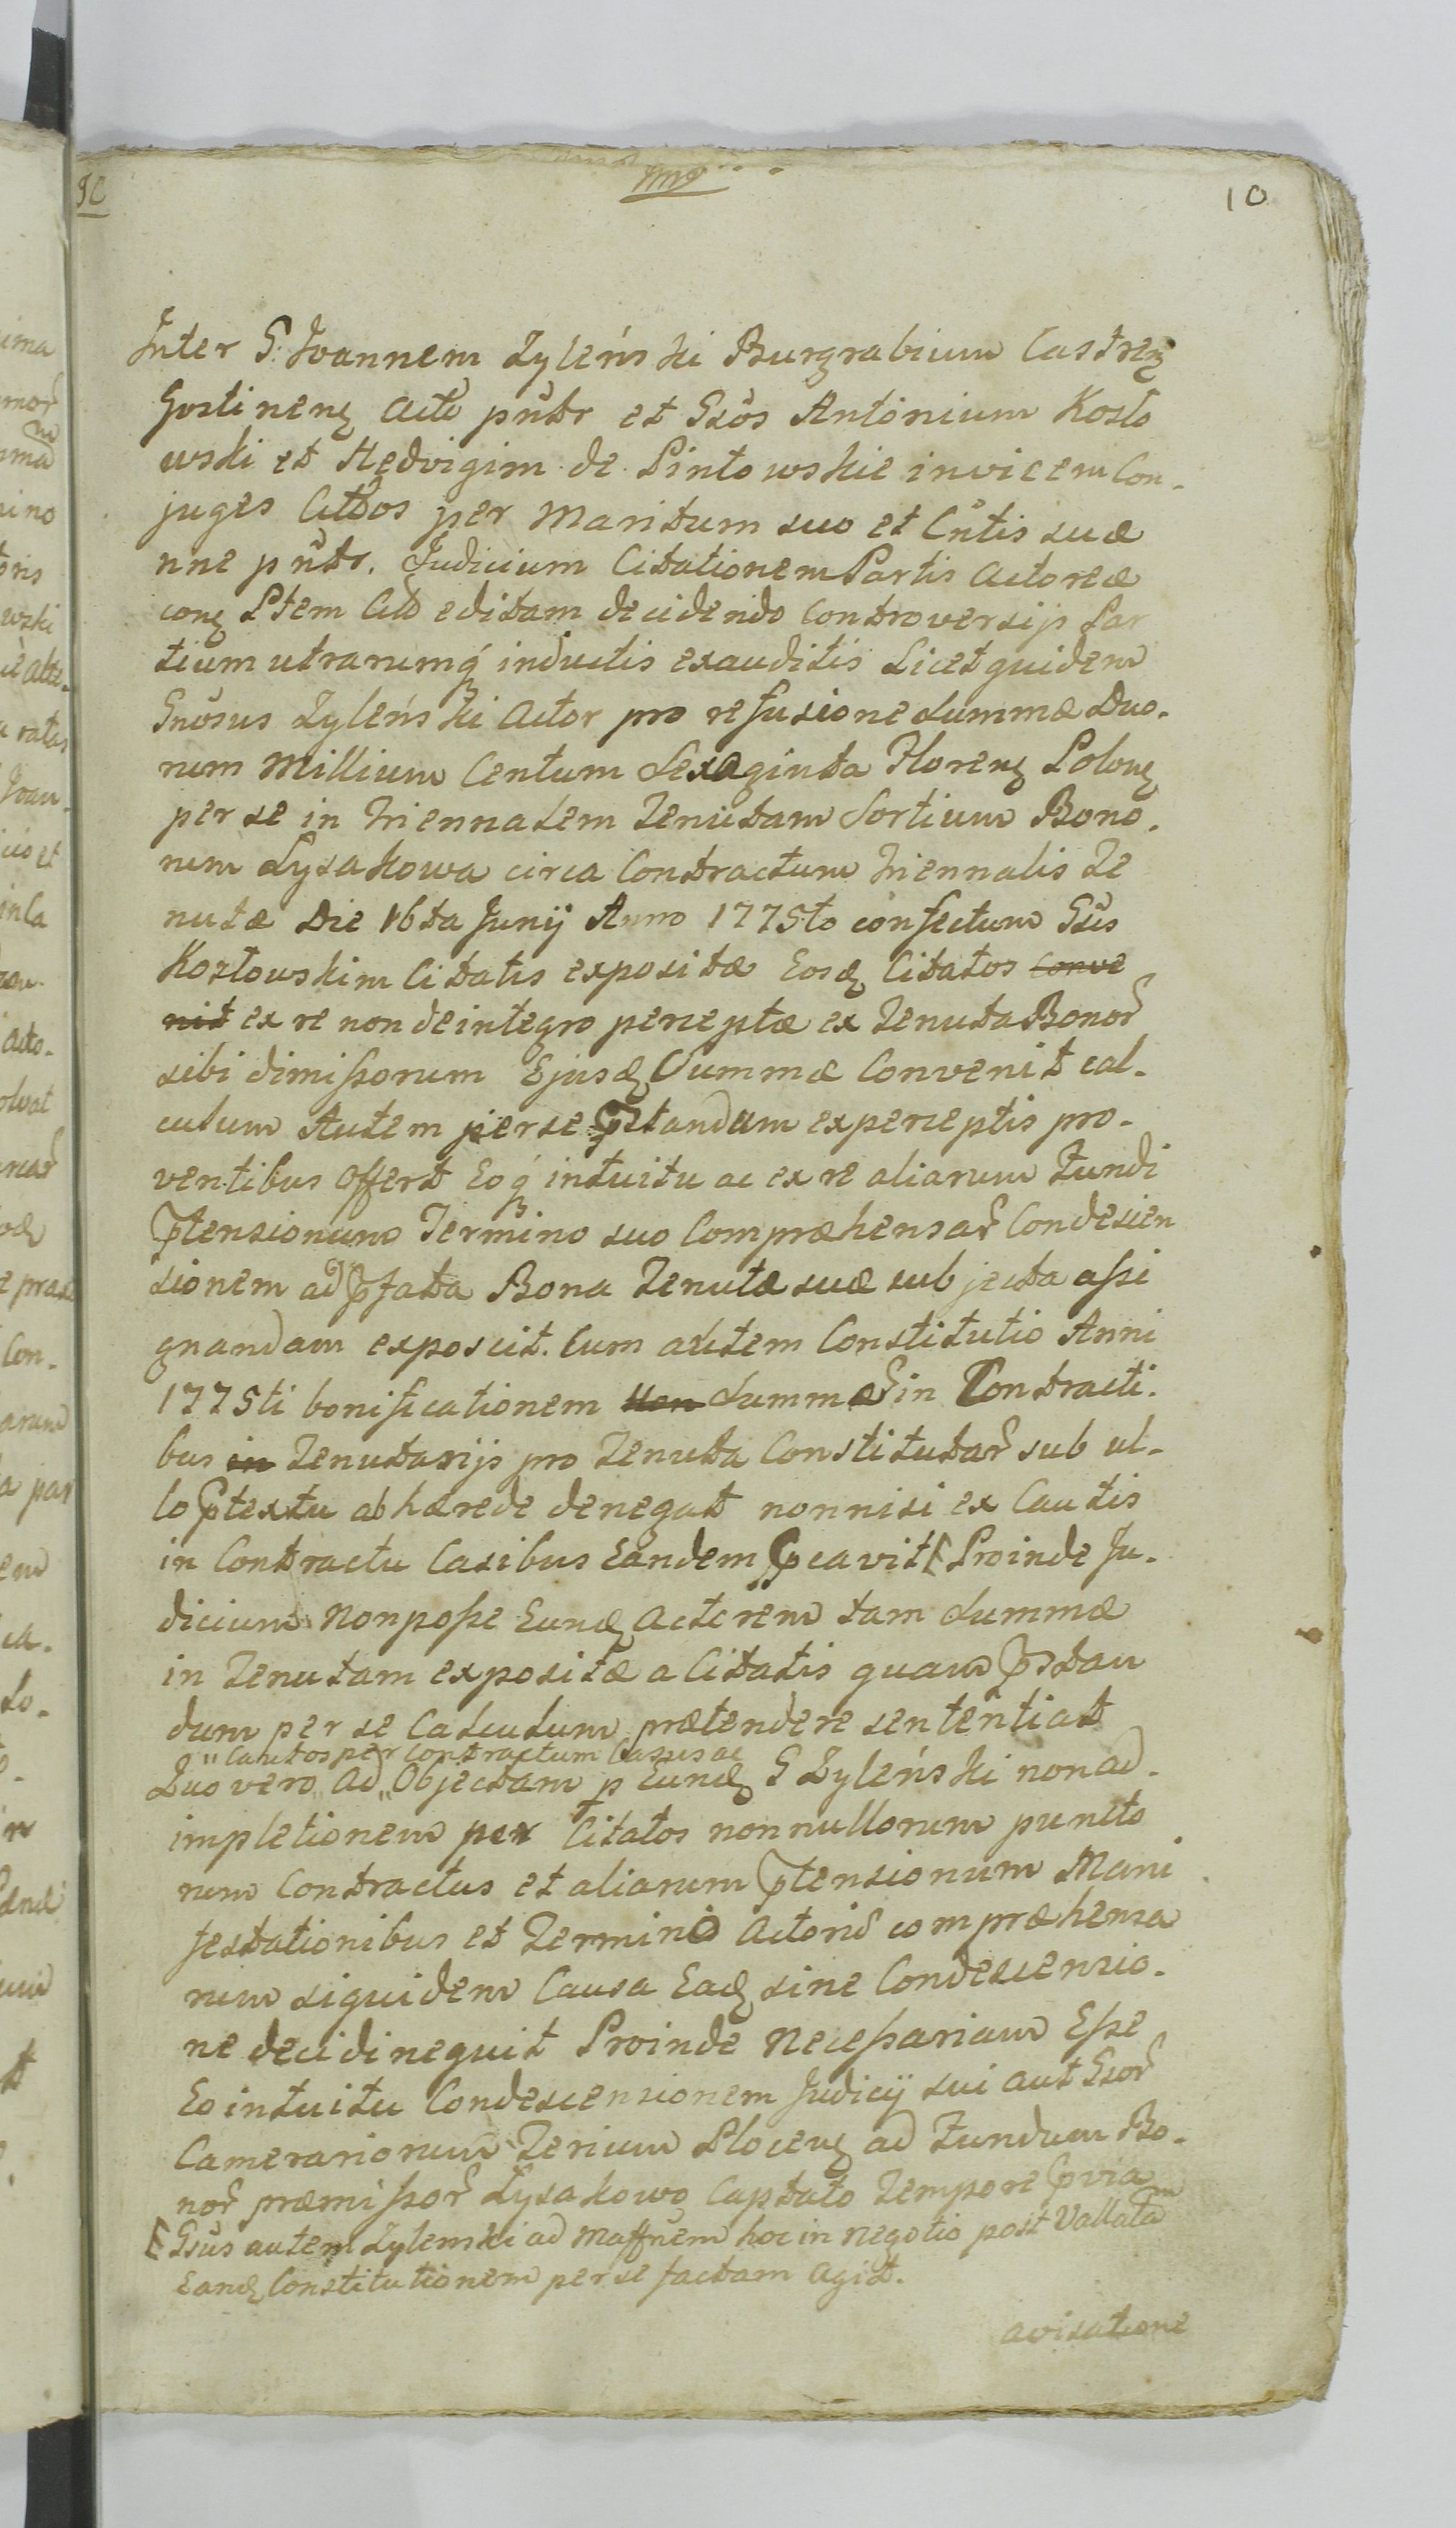 10
Inter G. Joannem Zyleński Burgrabium Castreń
Gostineń Actō pn̄tr et Gsōs Antonium Kosło
wski et Hedvigim de Lintowskie invicem Con-
juges Citōs per Maritum suo et Cn̄tis suæ
nne pn̄tr. Judicium Citationem Partis Actoreæ
conq̨ Ptem Citō editam decidendo Controversijs Par
tium utrarumq́ inductis exauditis Licet quidem
Gnōsus Zyleński Actor pro refusione Summæ Duo-
rum Millium Centum Sexaginta Floreń Poloń
per se in Triennalem Tenutam Sortium Bono-
rum Lysakowa circa Contractum Triennalis Te
nutæ Die 16ta Junij Anno 1775to confectum Gsīs
Kozłowskim Citatis expositæ Eosq̨ Citatos Conve
nit ex re non deintegro perceptæ ex Tenuta Bonor̄
sibi dimissorum Ejusq̨ Summæ Convenit cal-
culum Autem per se p̄standum ex perceptis pro-
ventibus Offert Eoq́ intuitu ac ex re aliarum Fundi
p̄tensionum Termino suo Compræhensar̄ Condescen
sionem ad p̄fata Bona Tenutæ suæ subjecta assi
gnandam exposcit. Cum autem Constitutio Anni
1775ti bonificationem Summar̄ in Contracti-
bus in Tenutarijs pro Tenuta Constitutar̄ sub ul-
lo p̄textu ab hærede denegat nonnisi ex Cautis
in Contractu Casibus Eandem p̄cavit [ Proinde Ju-
dicium Non posse Eunq̨ Actorem tam Summæ
in Tenutam expositæ a Citatis quam p̄stan
dum per se Calculum prætendere sententiat
" Cautos per Contractum Casus ac
Quo vero Ad " Objectam p Eunq̨ G Zyleński non ad-
impletionem per Citatos nonnullorum puncto
rum Contractus et aliarum p̄tensionum Mani
festationibus et Termino Actorio compræhensa
rum siquidem Causa Eadq̨ sine Condescensio-
ne decidi nequit Proinde Necessariam Esse
Eo intuitu Condescensionem Judicij sui aut Gsor̄
Camerariorum Terrium Ploceń ad Fundum Bo-
nor̄ præmissor̄ Lysakowo Captato Tempore p̄via
[ Gsūs autem Zylenski ad Maff̄nem hoc in negotio post Vallatam
Eanq̨ Constitutionem per se factam Agit.
avisatione